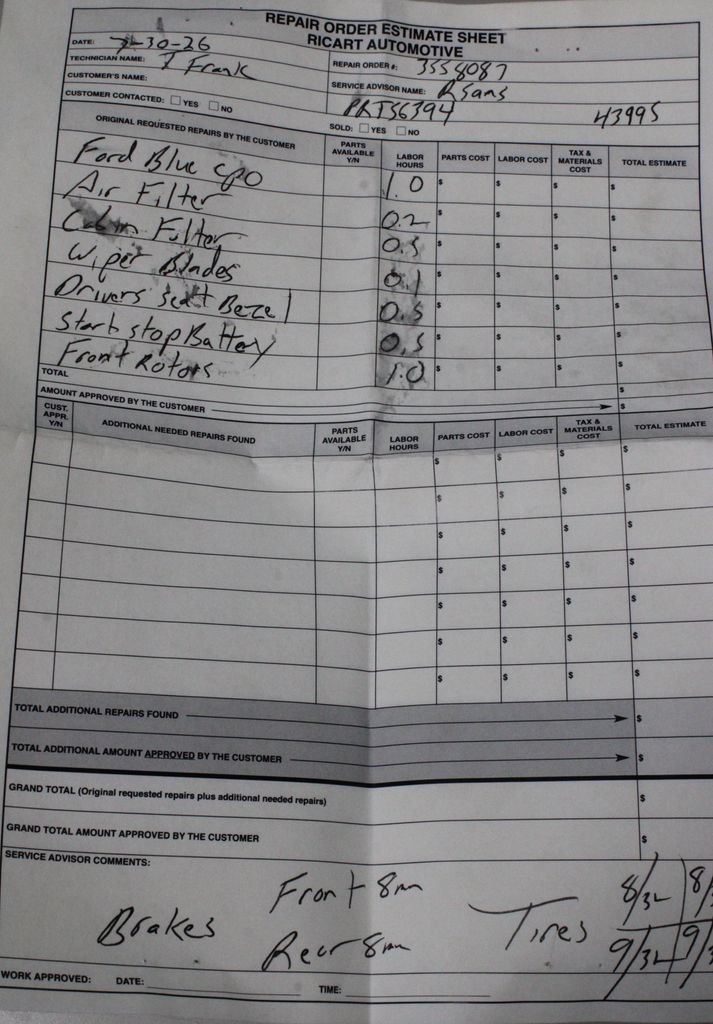 REPAIR ORDER ESTIMATE SHEET
RICART AUTOMOTIVE
DATE: 7-30-26
TECHNICIAN NAME: I Frank
REPAIR ORDER #: 3558087
CUSTOMER'S NAME:
SERVICE ADVISOR NAME: RSams
CUSTOMER CONTACTED: YES NO
PRT56394 43995
SOLD: YES NO
ORIGINAL REQUESTED REPAIRS BY THE CUSTOMER PARTS AVAILABLE Y/N LABOR HOURS PARTS COST LABOR COST TAX & MATERIALS COST TOTAL ESTIMATE
Ford Blue CPO 1.0 $ $ $ $
Air Filter 0.2 $ $ $ $
Cabin Filter 0.5 $ $ $ $
Wiper Blades 0.1 $ $ $ $
Drivers seat Bezel 0.5 $ $ $ $
Start stop Battery 0.5 $ $ $ $
Front Rotors 1.0 $ $ $ $
TOTAL $
AMOUNT APPROVED BY THE CUSTOMER $
CUST. APPR. Y/N ADDITIONAL NEEDED REPAIRS FOUND PARTS AVAILABLE Y/N LABOR HOURS PARTS COST LABOR COST TAX & MATERIALS COST TOTAL ESTIMATE
$ $ $ $
$ $ $ $
$ $ $ $
$ $ $ $
$ $ $ $
$ $ $ $
$ $ $ $
TOTAL ADDITIONAL REPAIRS FOUND $
TOTAL ADDITIONAL AMOUNT APPROVED BY THE CUSTOMER $
GRAND TOTAL (Original requested repairs plus additional needed repairs) $
GRAND TOTAL AMOUNT APPROVED BY THE CUSTOMER $
SERVICE ADVISOR COMMENTS:
Brakes Front 8mm
Rear 8mm
Tires 8/32 8/3
9/32 9/3
WORK APPROVED: DATE: TIME: